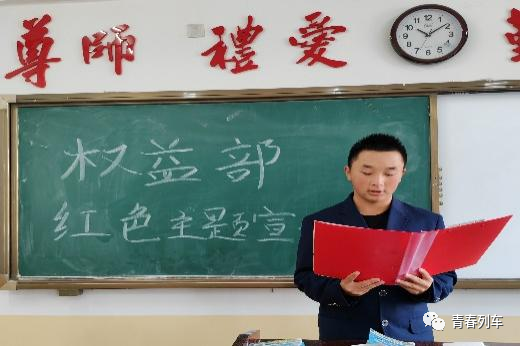 尊師 禮愛
权益部
红色主题宣
青春列车